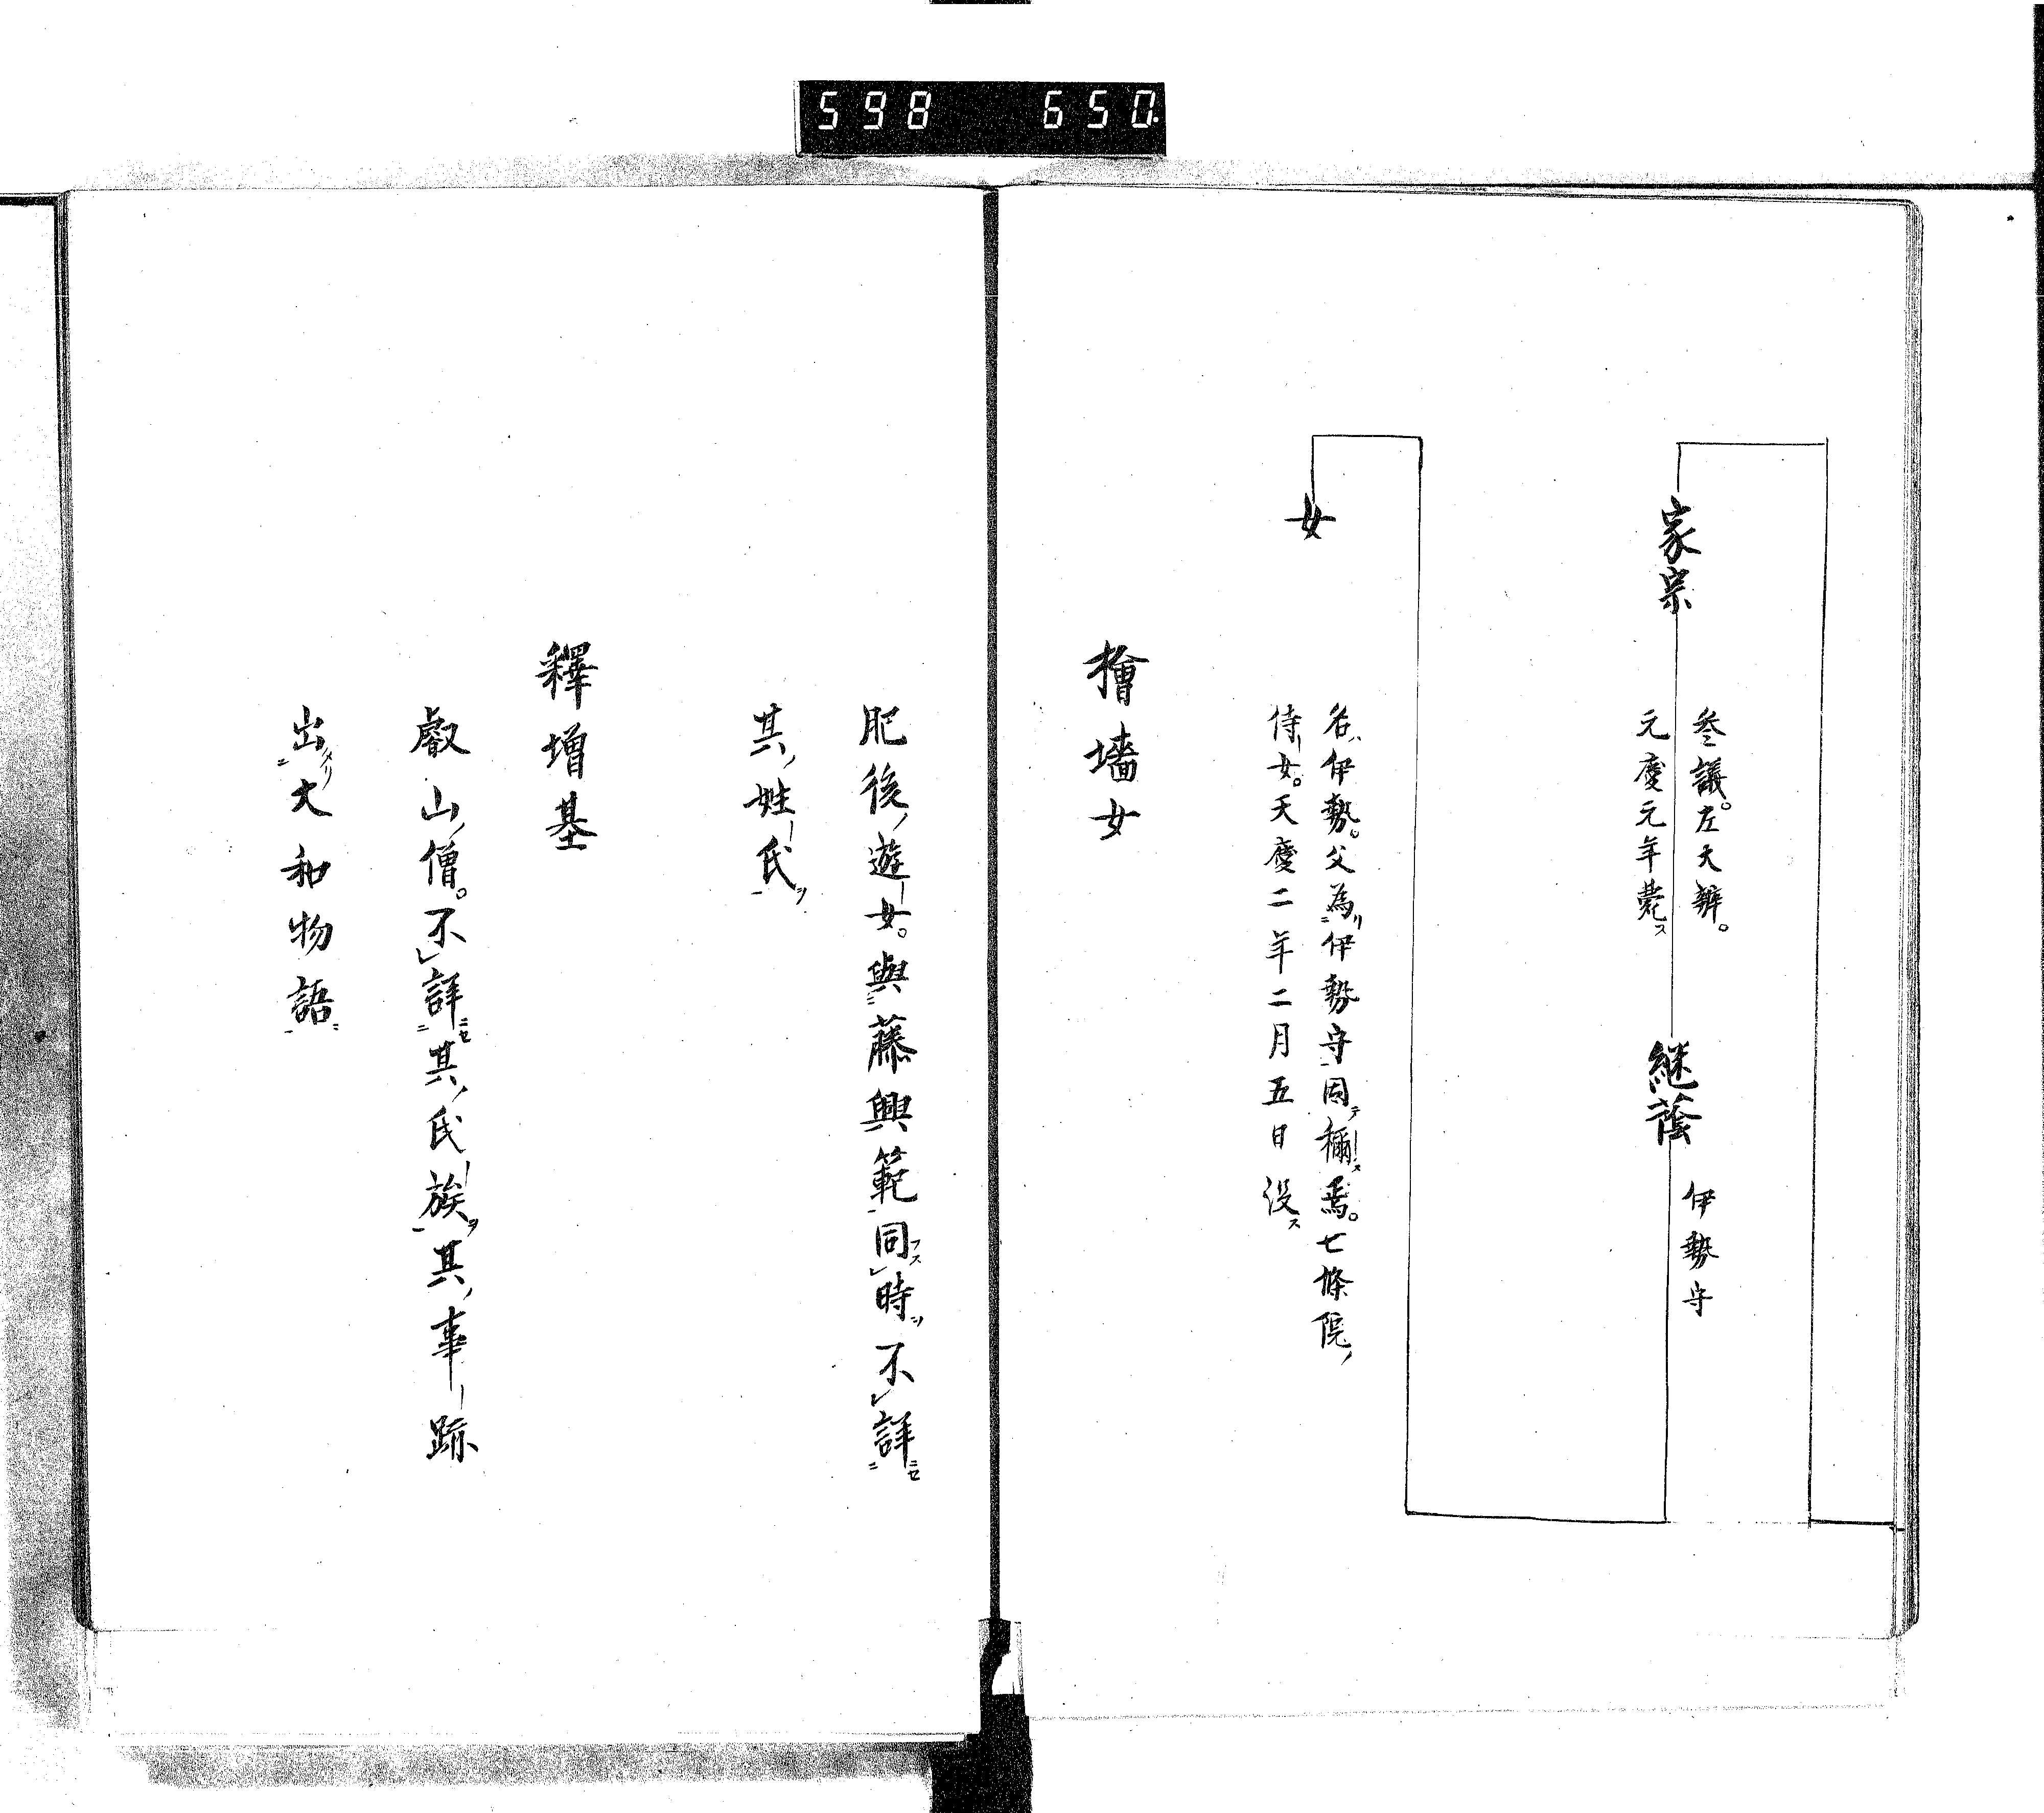 598 650
家宗
参議。左大辨。
元慶元年薨ス
継蔭
伊勢守
女
名ハ伊勢。父為リ二伊勢守一因テ稱ス焉。七條院ノ
侍女。天慶二年二月五日没ス
檜墻女
肥後ノ遊女。與二藤興範一同フスレ時ヲ不レ詳ニセ二
其ノ姓氏ヲ一
釋増基
叡山ノ僧。不レ詳ニセ二其ノ氏族ヲ一其ノ事跡
出タリ二大和物語ニ一